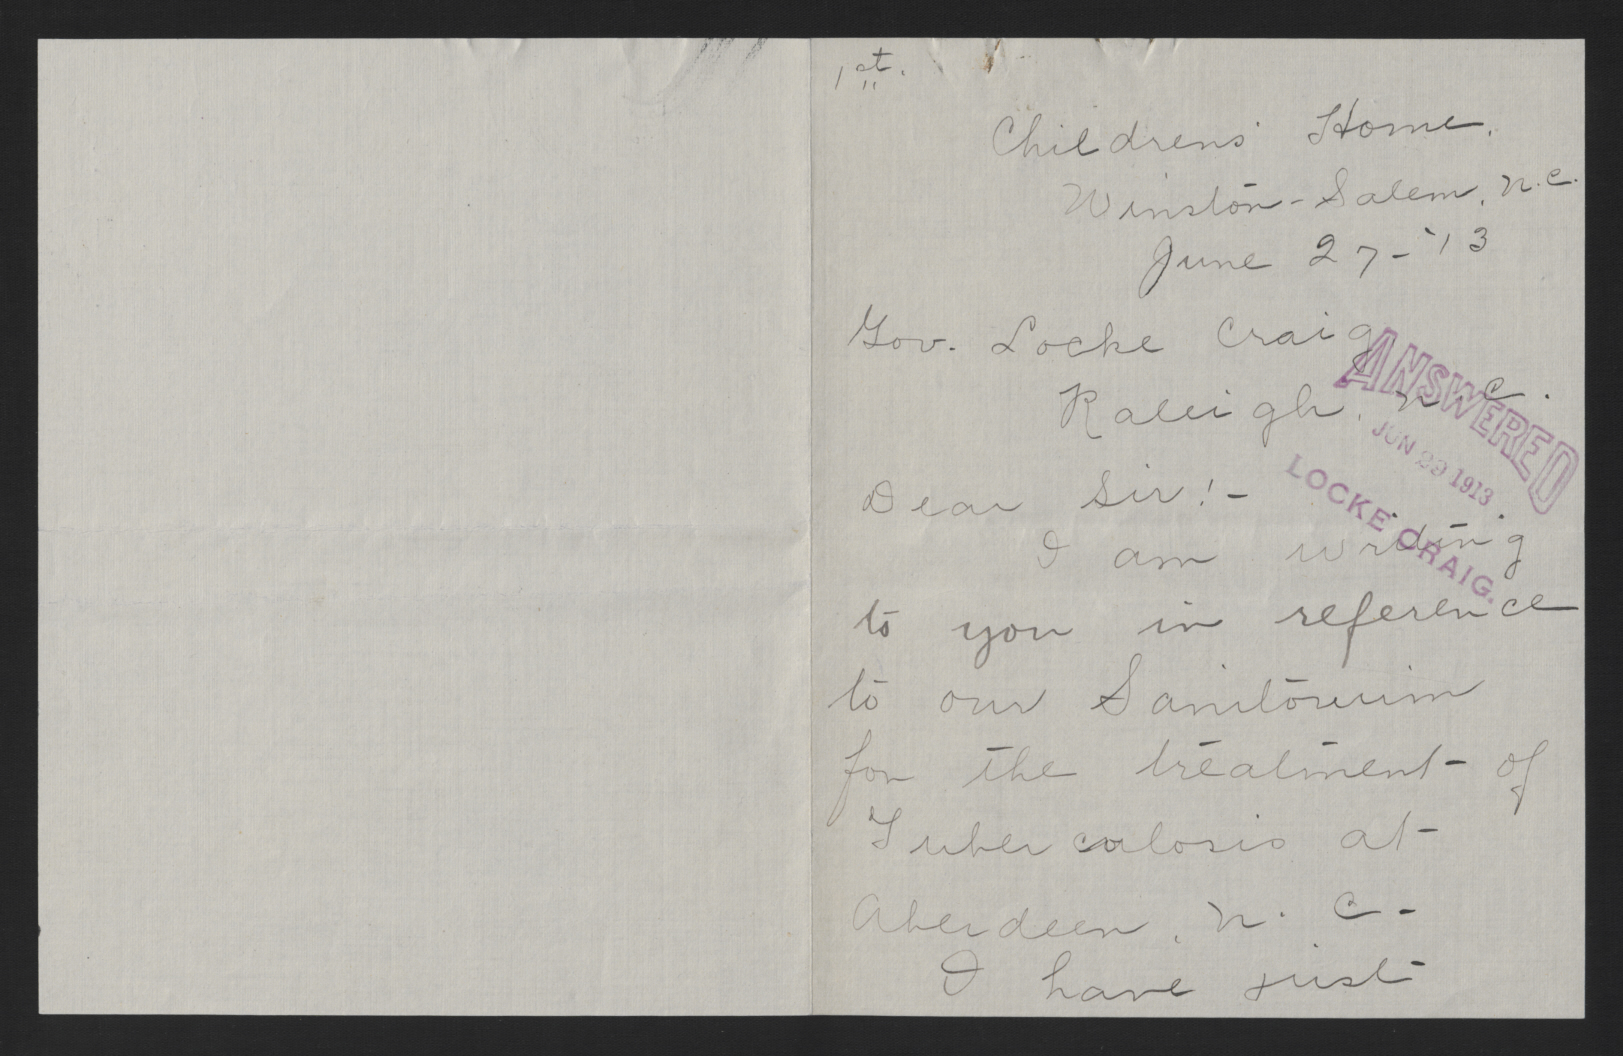 1st.
Childrens' Home.
Winston-Salem, N.C.
June 27-'13
Gov. Locke Craig
Raleigh, N.C.
ANSWERED
JUN 29 1913
LOCKE CRAIG.
Dear Sir!-
I am writing
to you in reference
to our Sanitorium
for the treatment of
Tuberculosis at
Aberdeen, N. C.-
I have just